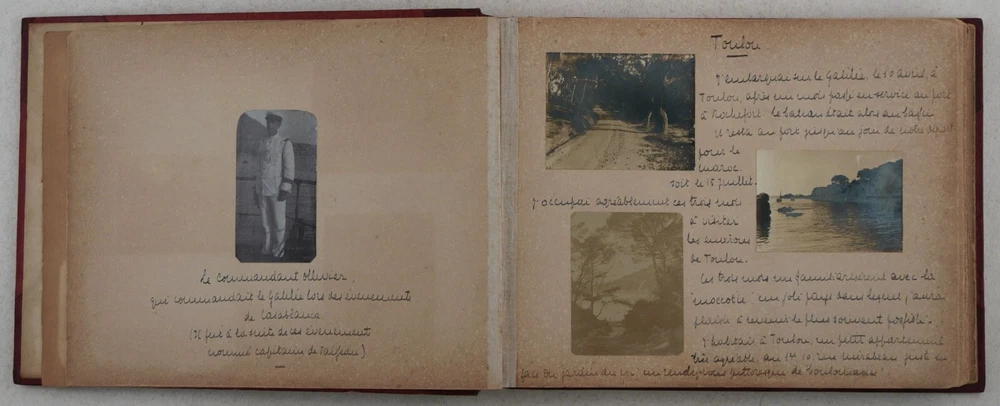 Le Commandant Ollivier
qui commandait le Galilée lors des évènements
de Casablanca
(Il fut à la suite de ces évènement
nommé capitaine de vaisseau)
Toulon
J'embarquai sur le Galilée, le 10 avril, à
Toulon, après un mois passé en service au port
à Rochefort. le bateau était alors au bassin
Il resta au port jusqu'au jour de notre départ
pour le
maroc
soit le 15 juillet.
J'occupai agréablement ces trois mois
à visiter
les environs
de Toulon.
Ces trois mois me familiarisèrent avec la
un joli pays dans lequel j'aurai
plaisir à revenir le plus souvent possible.
J'habitai à Toulon, un petit appartement
très agréable, au 10, rue mirabeau juste en
face du jardin du roi, un rendez-vous pittoresque de